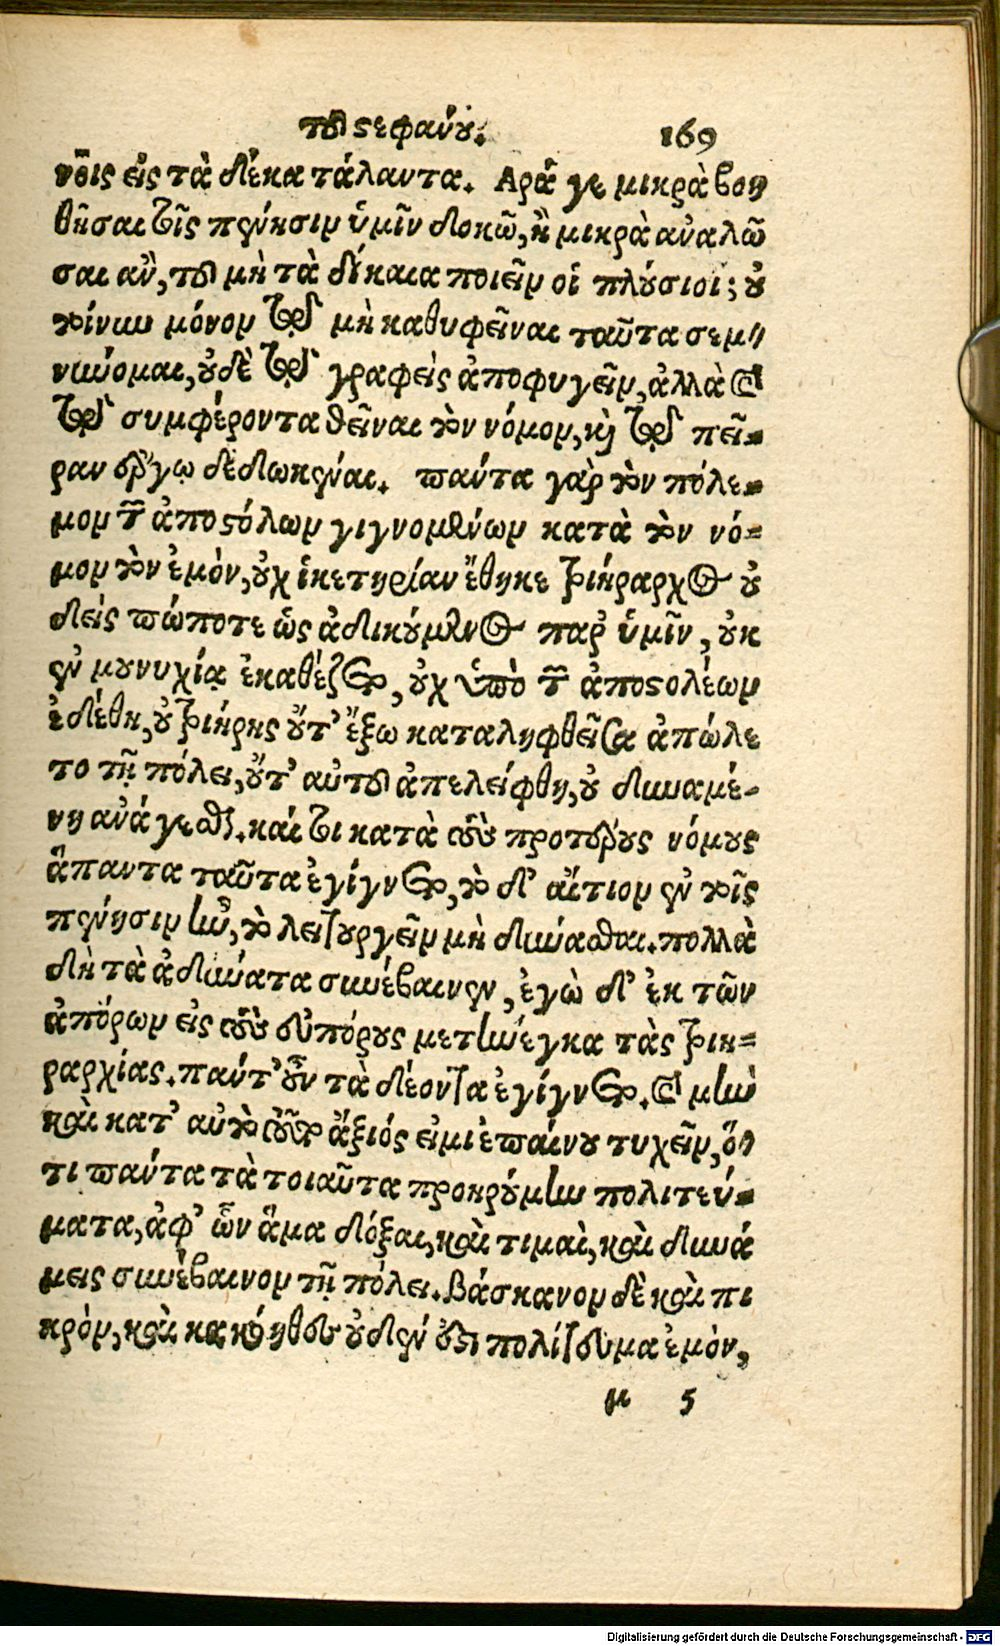 τοῦ στεφάνου. 169
νοῖς εἰς τὰ δέκα τάλαντα. Αρά γε μικρὰ βοη
θῆσαι τοῖς πένησιν ὑμῖν δοκῶ, ἢ μικρὰ ἀναλῶ
σαι ἂν, τοῦ μὴ τὰ δίκαια ποιεῖν οἱ πλούσιοι; οὐ
τοίνυν μόνον τῷ μὴ καθυφεῖναι ταῦτα σεμ-
νύνομαι, οὐδὲ τῷ γραφεὶς ἀποφυγεῖν, ἀλλὰ καὶ
τῷ συμφέροντα θεῖναι τὸν νόμον, καὶ τῷ πεῖ-
ραν ἔργῳ δεδωκέναι. πάντα γὰρ τὸν πόλε-
μον τῶν ἀποστόλων γιγνομένων κατὰ τὸν νό-
μον τὸν ἐμὸν, οὐχ ἱκετηρίαν ἔθηκε τριήραρχος οὐ
δεὶς πώποτε ὡς ἀδικούμενος παρ' ὑμῖν, οὐκ
ἐν μουνυχίᾳ ἐκαθέζετο, οὐχ ὑπὸ τῶν ἀποστολέων
ἐδέθη, οὐ τριήρης οὔτ' ἔξω καταληφθεῖσα ἀπώλε
το τῇ πόλει, οὔτ' αὐτοῦ ἀπελείφθη, οὐ δυναμέ-
νη ἀνάγεσθαι. καί τοι κατὰ τοὺς προτέρους νόμους
ἅπαντα ταῦτα ἐγίγνετο, τὸ δ' αἴτιον ἐν τοῖς
πένησιν ἦν, τὸ λειτουργεῖν μὴ δύνασθαι. πολλὰ
δὴ τὰ ἀδύνατα συνέβαινεν, ἐγὼ δ' ἐκ τῶν
ἀπόρων εἰς τοὺς εὐπόρους μετήνεγκα τὰς τριη-
ραρχίας. πάντ' οὖν τὰ δέοντα ἐγίγνετο. καὶ μὴν
καὶ κατ' αὐτὸ τοῦτο ἄξιός εἰμι ἐπαίνου τυχεῖν, ὅ-
τι πάντα τὰ τοιαῦτα προῃρούμην πολιτεύ-
ματα, ἀφ' ὧν ἅμα δόξαι, καὶ τιμαὶ, καὶ δυνά
μεις συνέβαινον τῇ πόλει. βάσκανον δὲ καὶ πι
κρὸν, καὶ κακόηθες οὐδέν ἐστι πολίτευμα ἐμὸν,
μ 5
Digitalisierung gefördert durch die Deutsche Forschungsgemeinschaft - DFG